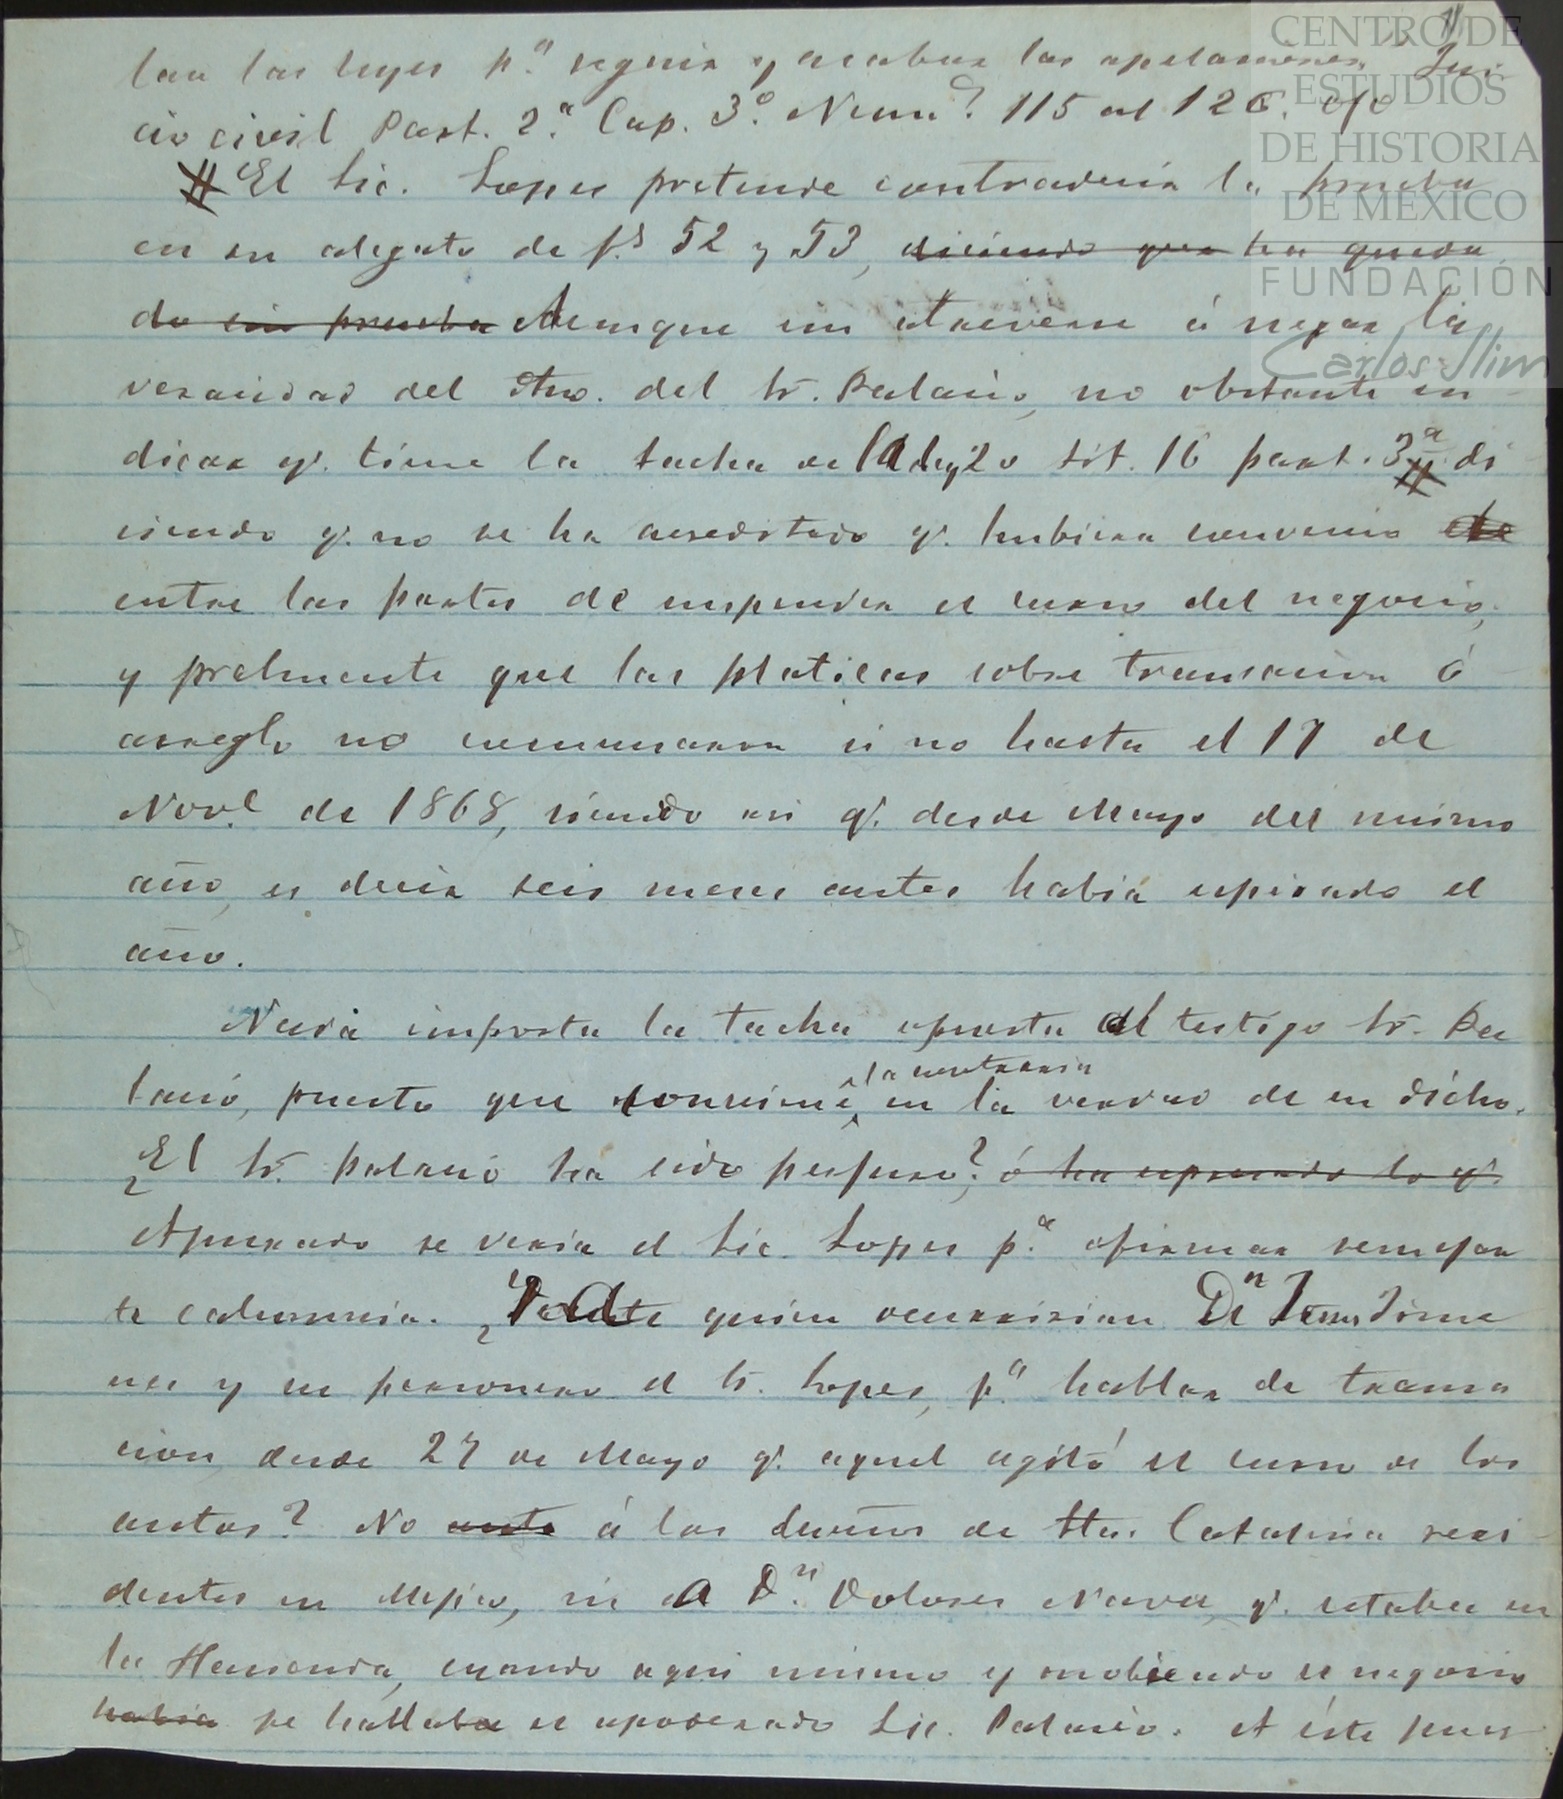 11
lan las leyes p.ª seguir y acabar las apelaciones. Jui
cio civil Part. 2.ª Cap. 3.º Num.º 115 al 126.
El Lic. Lopes pretende contradecir la prueba
en su alegato de f.s 52 y 53, diciendo que ha queda
do sin prueba Aunque sin atreverse á negar la
veracidad del atto. del Sr. Palacio, no obstante in
dicar q.e tiene la tacha de la ley 20 tit. 16 part. 3.ª di
ciendo q.e no se ha acreditado q.e hubiera convenio
entre las partes de suspender el curso del negocio,
y pralmente que las platicas sobre transacion ó
arreglo no comenzaron si no hasta el 17 de
Nov.e de 1868, siendo asi q.e desde Mayo del mismo
año, es decir seis meses antes habia espirado el
año.
Nada importa la tacha opuesta al testigo Sr. Pa
lacio, puesto que conviene la contraria en la verdad de su dicho.
¿El Sr. Palacio ha sido perjuro? ó ha espresado lo q.e
Apurado se veria el Lic. Lopes p.ª afirmar semejan
te calumnia. ¿ quien ocurririan Dn Jesus Jime
nes y su personero el Sr. Lopes, p.ª hablar de transa
cion desde 27 de Mayo q.e aquel agitó el curso de los
autos? No ante á los dueños de Sta. Catarina resi
dentes en Mejico, ni á D.n Dolores Nava, q.e estaba en
la Hacienda, cuando aqui mismo y moviendo el negocio
habia se hallaba el apoderado Lic. Palacio. A éste pues
CENTRO DE
ESTUDIOS
DE HISTORIA
DE MÉXICO
FUNDACIÓN
Carlos Slim